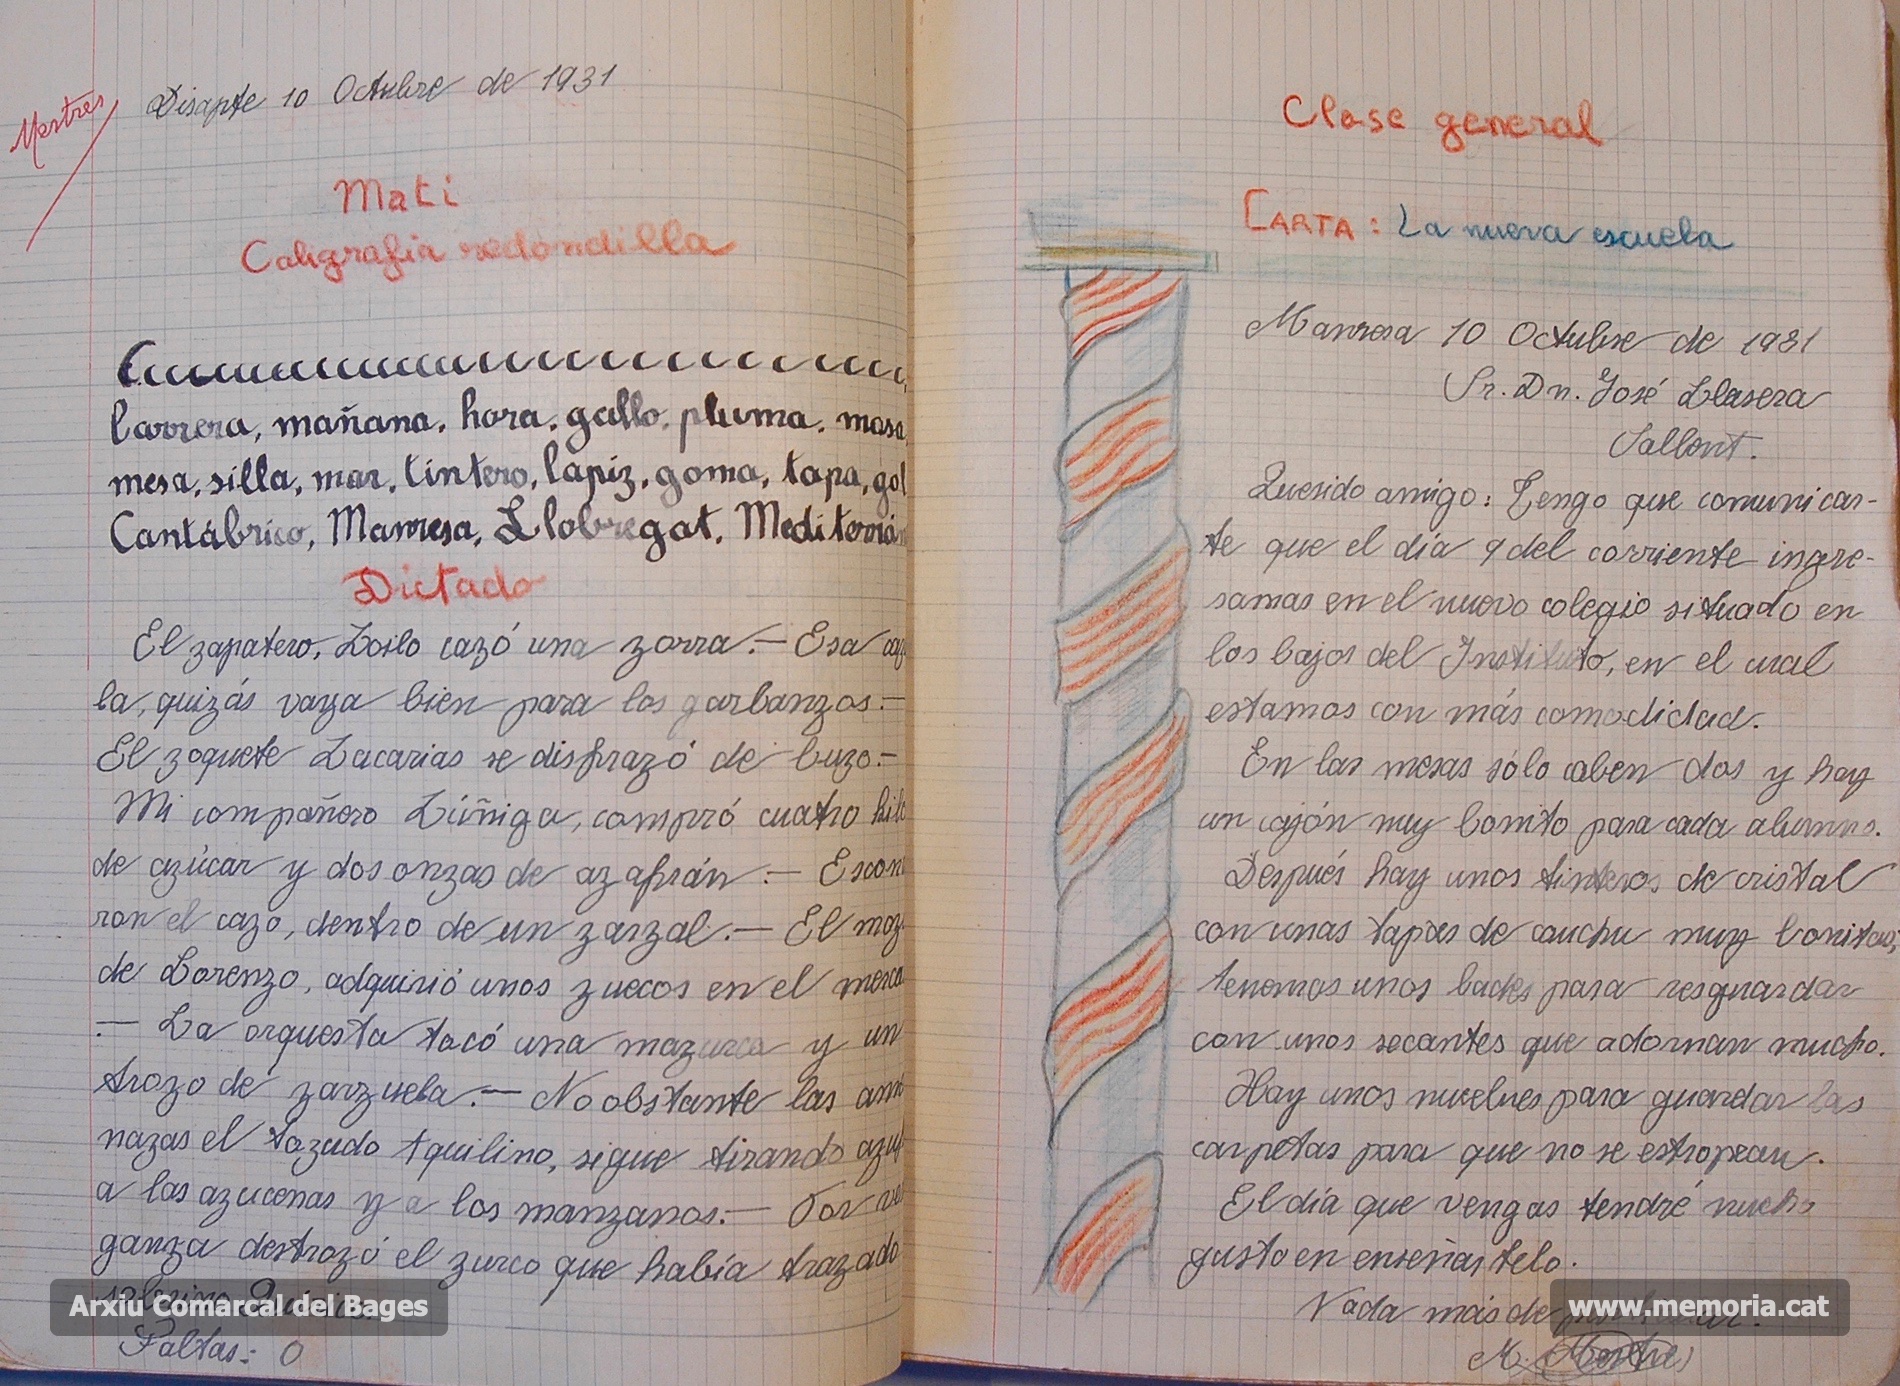 Mestres
Disapte 10 Octubre de 1931
Matí
Caligrafia redondilla
Carrera, mañana, hora, gallo, pluma, masa,
mesa, silla, mar, tintero, lápiz, goma, tapa, gol
Cantábrico, Manresa, Llobregat, Mediterrán
Dictado
El zapatero, Zoilo cazó una zorra.— Esa caz
la, quizás vaya bien para los garbanzos.—
El zoquete Zacarias se disfrazó de buzo.—
Mi compañero Zúñiga, compró cuatro kilo
de azúcar y dos onzas de azafrán.— Escon
ron el cazo, dentro de un zarzal.— El moz
de Lorenzo, adquirió unos zuecos en el merca
.— La orquesta tocó una mazurca y un
trozo de zarzuela.— No obstante las ame
nazas el tozudo Aquilino, sigue tirando azuf
a las azucenas y a los manzanos.— Por ve
ganza destrozó el zurco que había trazado
sobrino
Faltas: 0
Clase general
CARTA: La nueva escuela
Manresa 10 Octubre de 1931
Sr. Dn. José Llasera
Sallent.
Querido amigo: Tengo que comunicar-
te que el día 9 del corriente ingre-
samas en el nuevo colegio situado en
los bajos del Instituto, en el cual
estamos con más comodidad.
En las mesas sólo caben dos y hay
un cajón muy bonito para cada alumno.
Después hay unos tinteros de cristal
con unas tapas de cauchu muy bonitas;
tenemos unos bades para resguardar
con unos secantes que adornan mucho.
Hay unos muebles para guardar las
carpetas para que no se estropean.
El día que vengas tendré mucho
gusto en enseñartelo.
Nada más de particular.
M. Mestres
Arxiu Comarcal del Bages
www.memoria.cat